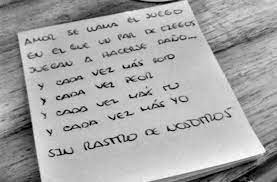 AMOR SE LLAMA EL JUEGO
EN EL QUE UN PAR DE CIEGOS
JUEGAN A HACERSE DAÑO...
Y CADA VEZ MÁS ROTO
Y CADA VEZ PEOR
Y CADA VEZ MÁS TU
Y CADA VEZ MÁS YO
SIN RASTRO DE NOSOTROS